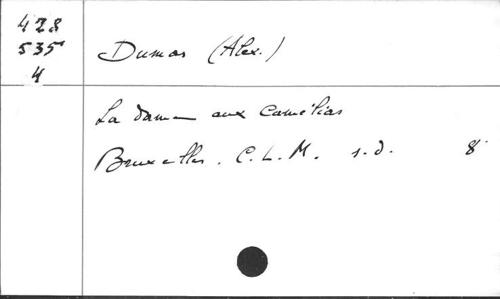 428
535
4
Dumas (Alex.)
La dame aux Camélias
Bruxelles. C. L. M. s.d. 8°